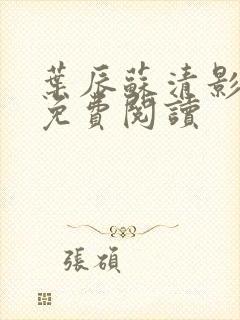 葉辰蘇清影
免費閱讀
張碩